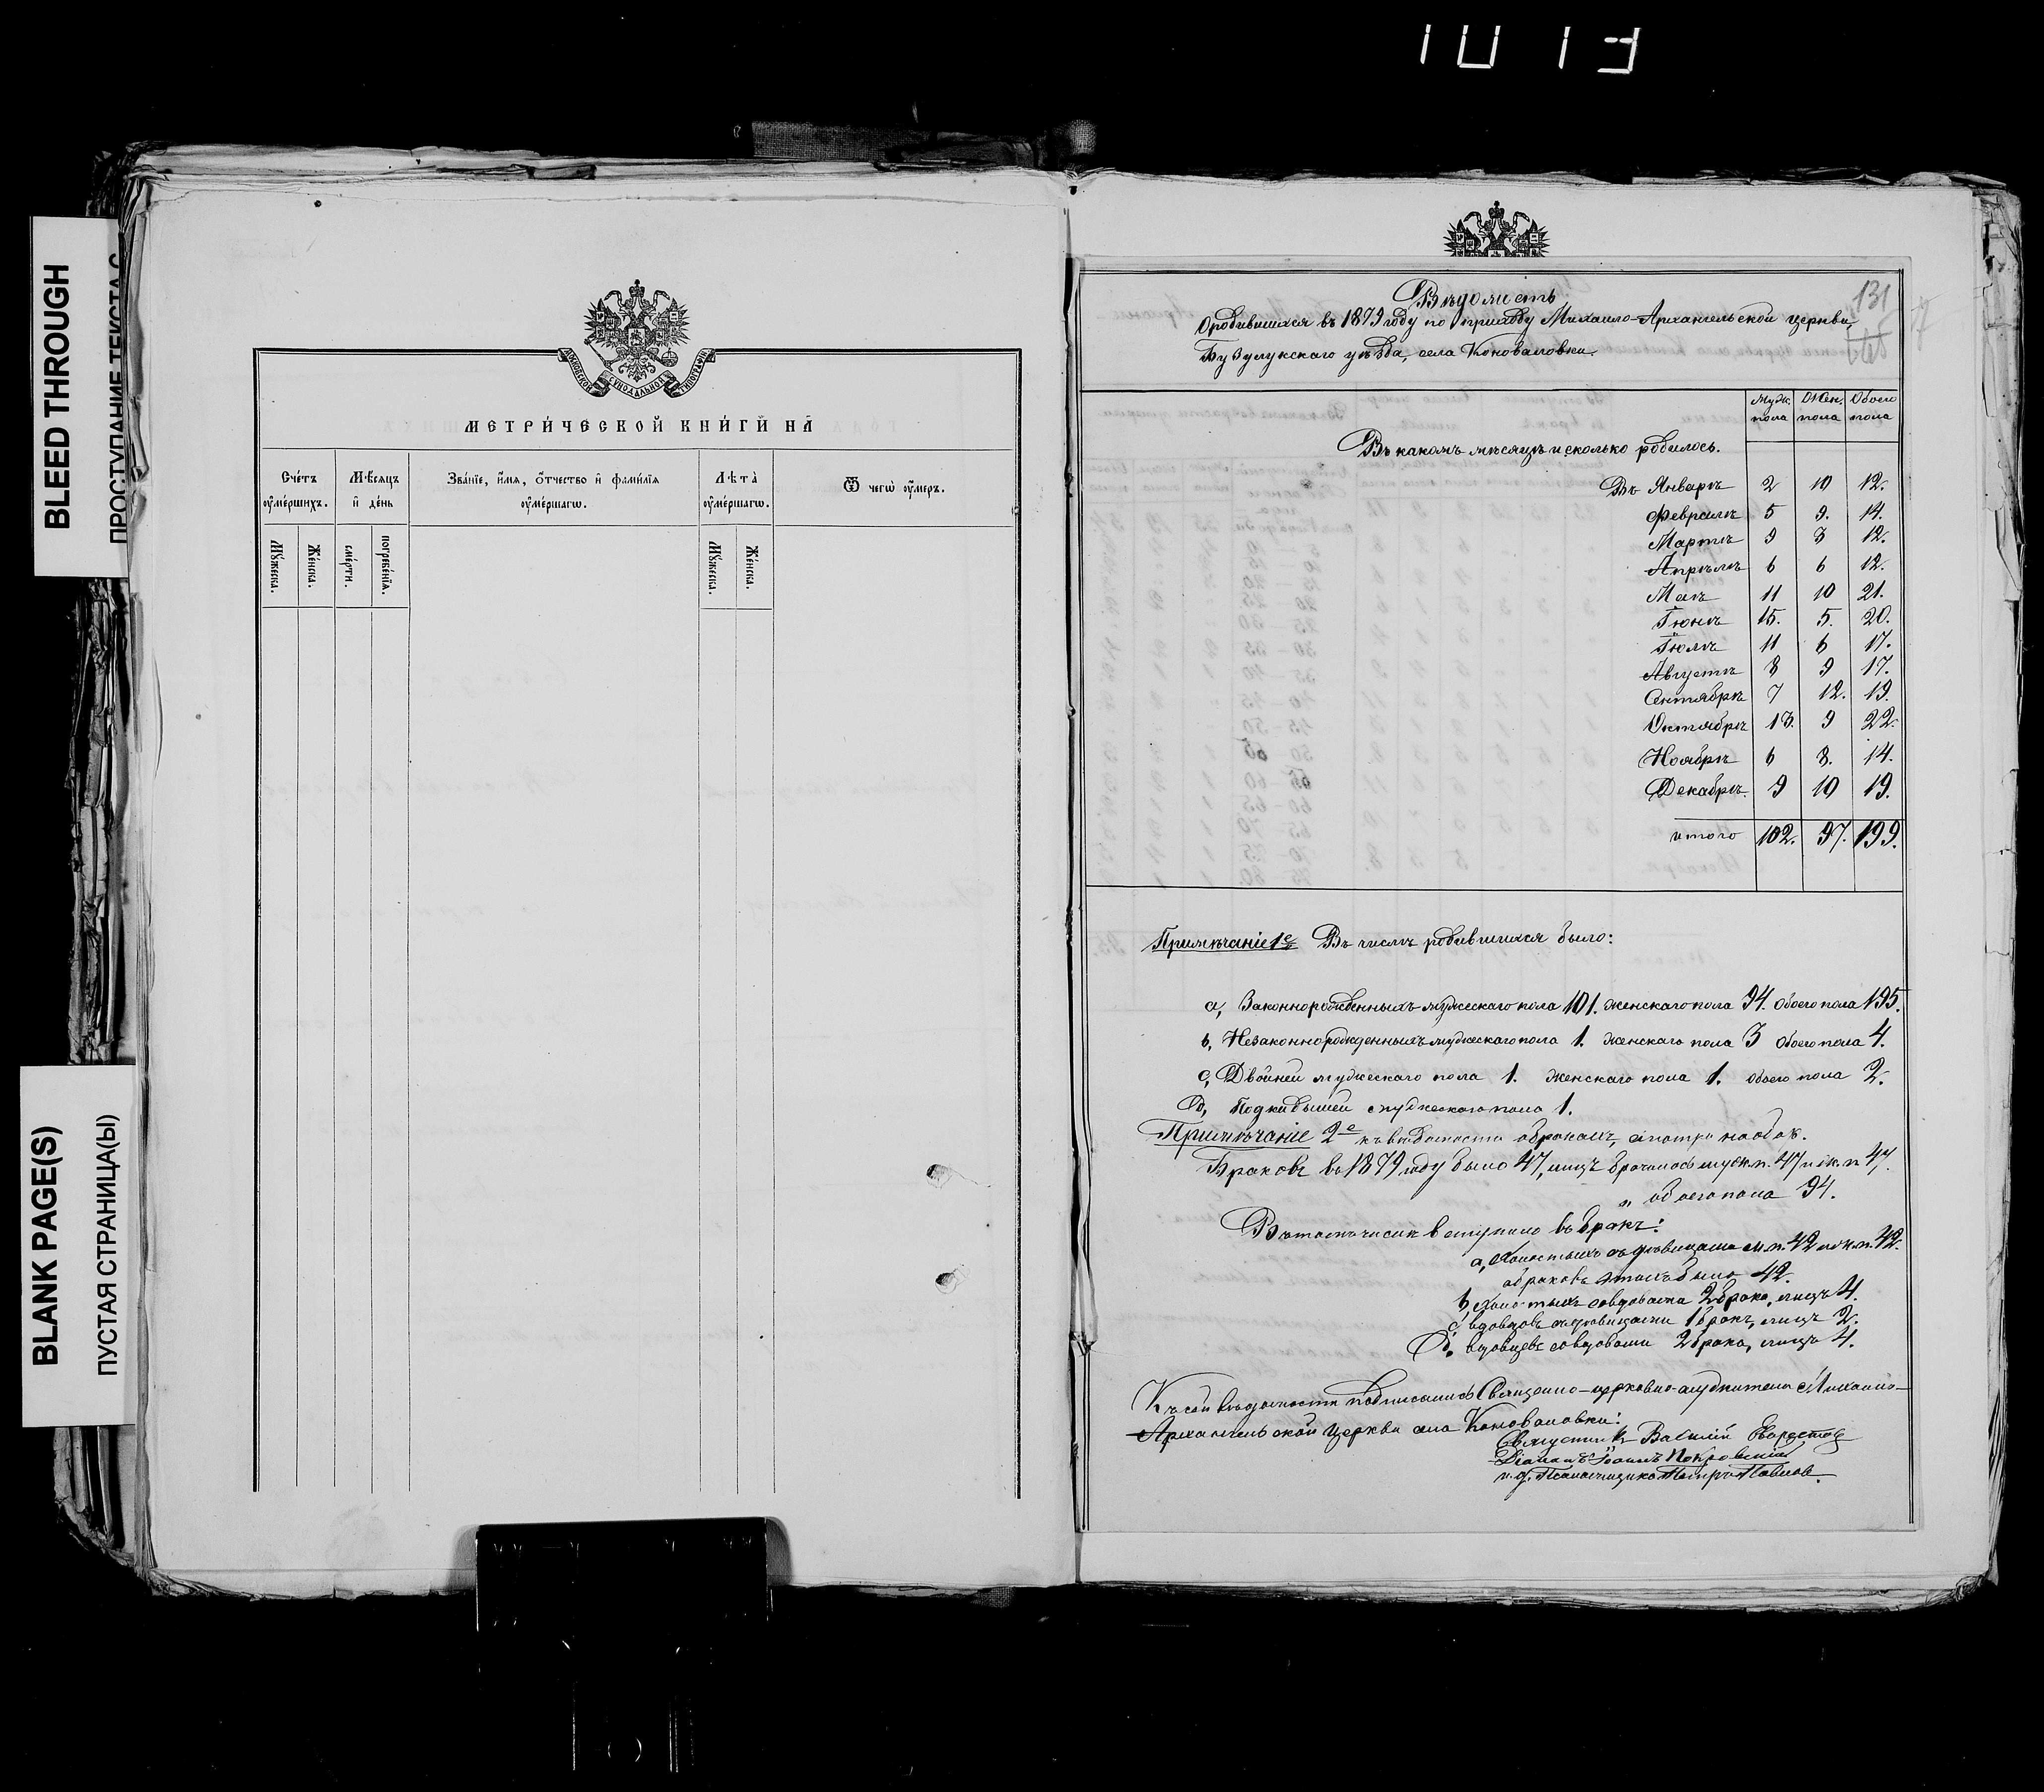 1013
BLEED THROUGH
ПРОСТУПАНИЕ ТЕКСТА С
BLANK PAGE(S)
ПУСТАЯ СТРАНИЦА(Ы)
МОСКОВСКОЙ СѴНОДАЛЬНОЙ ТИПОГРАФІИ
МЕТРИ́ЧЕСКОЙ КНИ́ГИ НА
Сче́тъ оу҆ме́ршихъ.
Мѣ́сяцъ и҆ де́нь
Зва́нїе, и҆́мѧ, ѻ҆́тчество и҆ фами́лїѧ оу҆ме́ршагѡ.
Лѣ́та оу҆ме́ршагѡ.
Ѿ чегѡ̀ оу҆́меръ.
Мꙋ́жеска.
Же́нска.
сме́рти.
погребе́нїѧ.
Мꙋ́жеска.
Же́нска.
131
Вѣдомость
О родившихся въ 1879 году по приходу Михаило-Архангельской церкви,
Бузулукскаго уѣзда, села Коноваловки.
Муж. пола
Жен. пола
Обоего пола
Въ какомъ мѣсяцѣ и сколько родилось.
Въ Январѣ 2 10 12.
Февралѣ 5 9. 14.
Мартѣ 9 3 12.
Апрѣлѣ 6 6 12.
Маѣ 11 10 21.
Іюнѣ 15. 5. 20.
Іюлѣ 11 6 17.
Августѣ 8 9 17.
Сентябрѣ 7 12. 19.
Октябрѣ 13. 9 22.
Ноябрѣ 6 8. 14.
Декабрѣ. 9 10 19.
итого 102. 97. 199.
Примѣчаніе 1е Въ числѣ родившихся было:
а, Законнорожденныхъ мужескаго пола 101. женскаго пола 94. обоего пола 195.
в, Незаконнорожденныхъ мужескаго пола 1. женскаго пола 3 обоего пола 4.
с, Двойней мужескаго пола 1. женскаго пола 1. обоего пола 2.
д, Подкидышей мужескаго пола 1.
Примѣчаніе 2е къ вѣдомости о бракахъ, смотри на обок.
Браковъ въ 1879 году было 47, лицъ брачилось муж. п. 47 и ж. п. 47.
„ обоего пола 94.
Въ томъ числѣ вступило въ бракъ:
а, холостыхъ съ дѣвицами м. п. 42 и ж. п. 42.
а браковъ этихъ было 42.
в, холостыхъ со вдовами 2 брака, лицъ 4.
с, вдовцовъ съ дѣвицами 1 бракъ, лицъ 2.
д, вдовцевъ со вдовами 2 брака, лицъ 4.
Къ сей вѣдомости подписались Священно-церковно-служители Михаило-
Архангельской церкви села Коноваловки:
Священникъ Василій Еварестов
Діаконъ Іоаннъ Покровскій
и. д. Псаломщика Петръ Павлов.